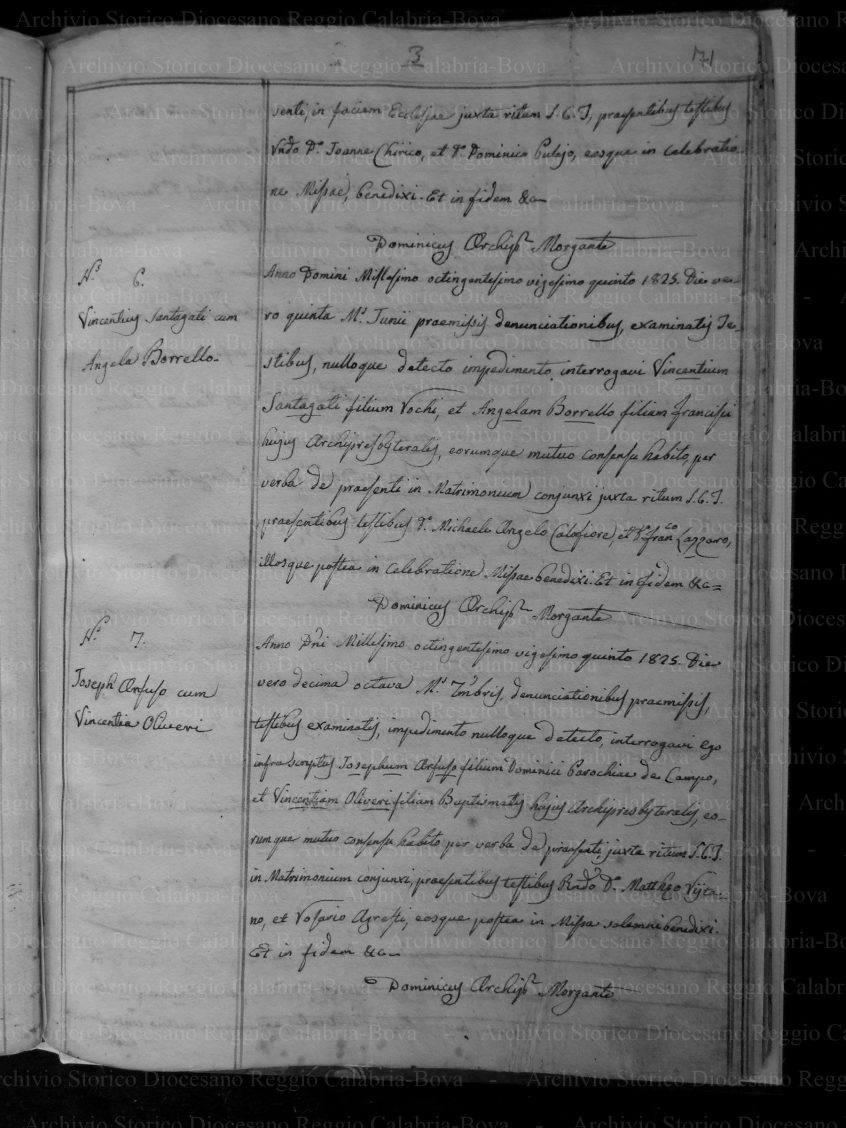 3
171
senti, in faciem Ecclesiae juxta ritum S. C. T., praesentibus testibus
Rndo D. Joanne Chirico, et D. Dominico Pulejo, eosque in celebratio
ne Missae, benedixi. Et in fidem &c
Dominicus Archipr Morgante
N.° 6.
Vincentius Santagati cum
Angela Borrello
Anno Domini Millesimo octingentesimo vigesimo quinto 1825. Die ve-
ro quinta M.s Junii praemissis denunciationibus, examinatis Te-
stibus, nulloque detecto impedimento, interrogavi Vincentium
Santagati filium Rochi, et Angelam Borrello filiam Francisci
hujus Archipresbyteralis, eorumque mutuo consensu habito, per
verba de praesenti in Matrimonium conjunxi juxta ritum S. C. T.
praesentibus testibus D. Michaele Angelo Calofiore, et D. Fran.co Lazzaro,
illosque postea in celebratione Missae benedixi. Et in fidem &c=
Dominicus Archipr Morgante
N.° 7.
Joseph Arfuso cum
Vincentia Oliveri
Anno Dni Millesimo octingentesimo vigesimo quinto 1825. Die
vero decima octava M.s 7mbris, denunciationibus praemissis,
testibus examinatis, impedimento nulloque detecto, interrogavi ego
infrascriptus Josephum Arfuso filium Dominici Parochiae de Campo,
et Vincentiam Oliveri filiam Baptismatis hujus Archipresbyteralis, eo-
rumque mutuo consensu habito per verba de praesenti, juxta ritum S. C. T.
in Matrimonium conjunxi, praesentibus testibus Rndo D. Mattheo
no, et Rosario Agresti, eosque postea in Missa solemni benedixi.
Et in fidem &c
Dominicus Archipr Morgante
Archivio Storico Diocesano Reggio Calabria-Bova